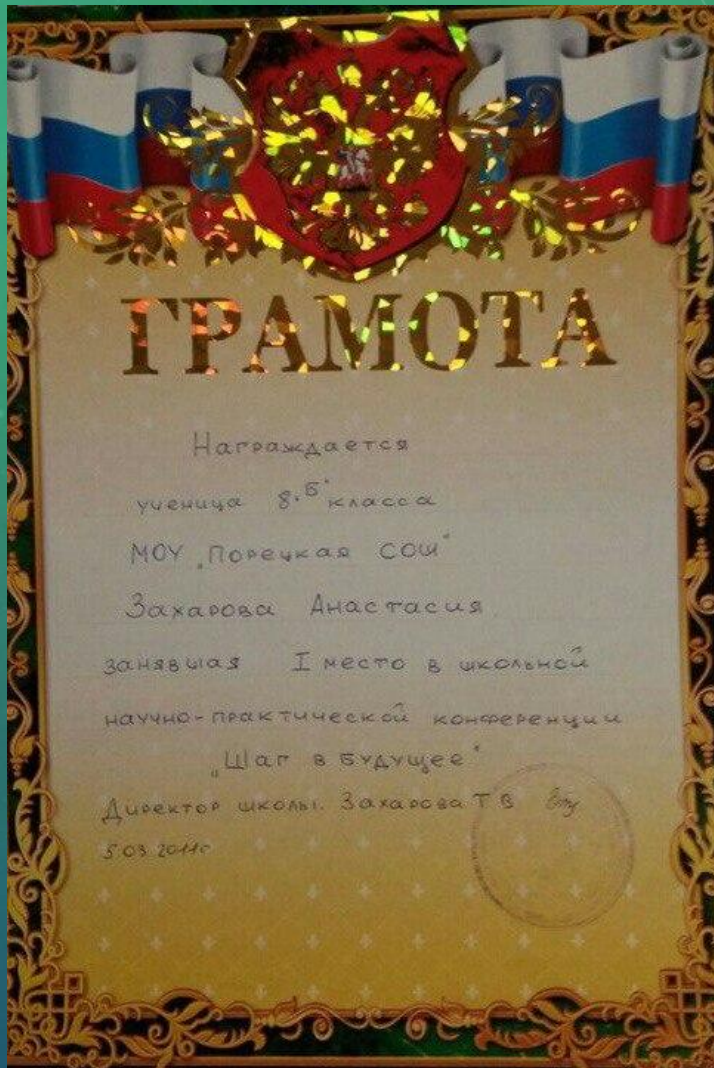 ГРАМОТА
Награждается
ученица 8 "Б" класса
МОУ "Порецкая СОШ"
Захарова Анастасия
занявшая I место в школьной
научно-практической конференции
"Шаг в будущее"
Директор школы. Захарова Т В
5.03.2011г